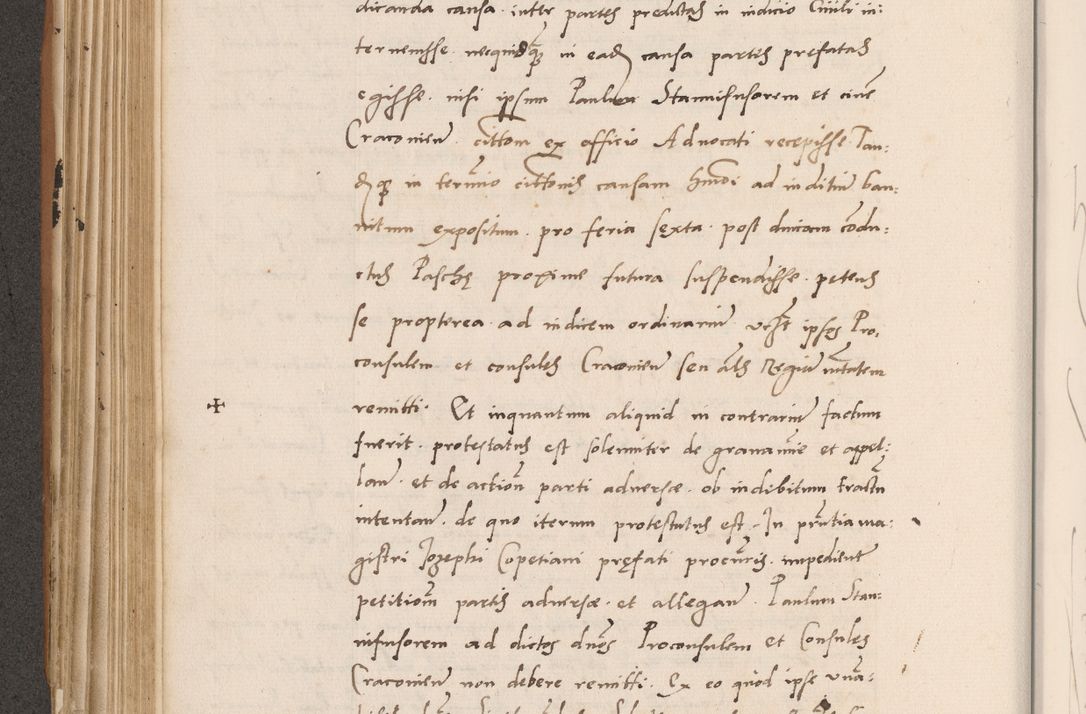 dicanda causa inter partes predictas in iudicio Ciuili in:
teruenisse. neequidq̃ꝫ in ead causa partes prefatas
egisse. nisi ipsum Paulum Stannifusorem et ciuē
Cracouien̄ cittom ex officio Aduocati recepisse. Tan:
dq̃ꝫ in termīo cittonis causam hmōi ad iuditiū ban:
nitum expositum. pro feria sexta. post dnicam cōdu:
ctus Paschę proxime futura suspendisse. petens
se propterea ad iudicem ordinariū ipsos Pro,
consulem et consules Cracouien̄ seu als Regiū
remitti. Et inquantum aliquid in contrariū factum
fuerit. protestatus est solemniter de grauamīe et appel:
lan̄. et de actiōn parti aduersæ. ob indebitum tractū
intentan̄. de quo iterum protestatus est. In prn̄tia ma:
gistri Iozephi Copetiani pręfati procūris. impedient̄
petitiōm partis aduersæ. et allegan̄. Paulum Stan:
nifusorem ad dictos dnos Proconsulem et Consules
Cracouien̄ non debere remitti. Ex eo quod ipse